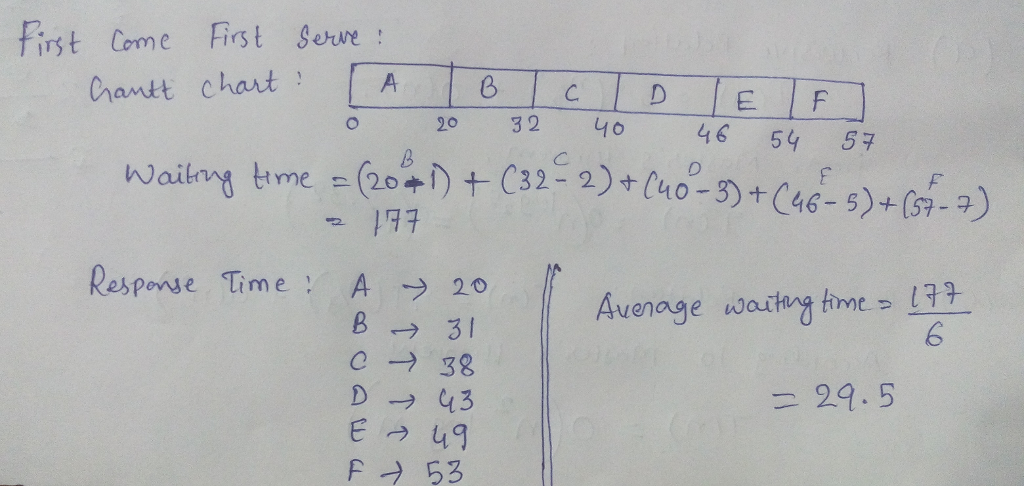 First Come First Serve :
Gantt chart : A B C D E F
0 20 32 40 46 54 57
B C D E F
Waiting time = (20-1) + (32-2) + (40-3) + (46-5) + (57-7)
= 177
Response Time : A → 20
B → 31
C → 38
D → 43
E → 49
F → 53
Average waiting time = 177
6
= 29.5